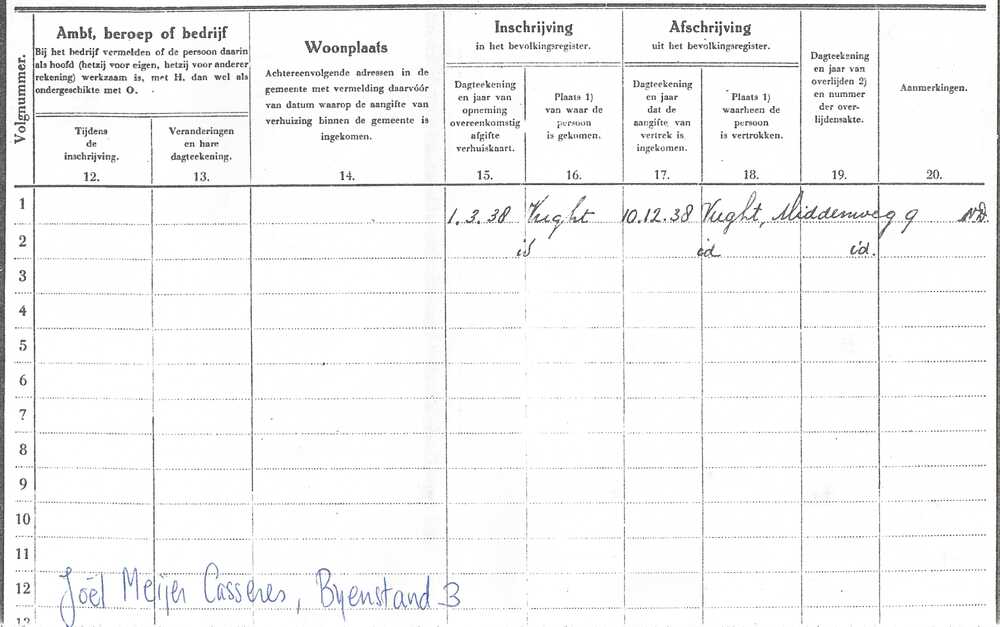 Volgnummer.
Ambt, beroep of bedrijf
Bij het bedrijf vermelden of de persoon daarin
als hoofd (hetzij voor eigen, hetzij voor anderer
rekening) werkzaam is, met H. dan wel als
ondergeschikte met O.
Tijdens
de
inschrijving.
12.
Veranderingen
en hare
dagteekening.
13.
Woonplaats
Achtereenvolgende adressen in de
gemeente met vermelding daarvóór
van datum waarop de aangifte van
verhuizing binnen de gemeente is
ingekomen.
14.
Inschrijving
in het bevolkingsregister.
Dagteekening
en jaar van
opneming
overeenkomstig
afgifte
verhuiskaart.
15.
Plaats 1)
van waar de
persoon
is gekomen.
16.
Afschrijving
uit het bevolkingsregister.
Dagteekening
en jaar
dat de
aangifte van
vertrek is
ingekomen.
17.
Plaats 1)
waarheen de
persoon
is vertrokken.
18.
Dagteekening
en jaar van
overlijden 2)
en nummer
der over-
lijdensakte.
19.
Aanmerkingen.
20.
1 1.3.38 Vught 10.12.38 Vught, Middenweg 9
2 id id id.
3
4
5
6
7
8
9
10
11
12 Joël Meijer Casseres, Byenstand 3
13